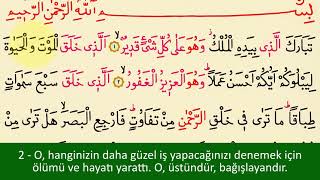 بِسْمِ اللّٰهِ الرَّحْمٰنِ الرَّحِيمِ
تَبَارَكَ الَّذِي بِيَدِهِ الْمُلْكُ وَهُوَ عَلٰى كُلِّ شَيْءٍ قَدِيرٌ ﴿١﴾ اَلَّذِي خَلَقَ الْمَوْتَ وَالْحَيٰوةَ
لِيَبْلُوَكُمْ اَيُّكُمْ اَحْسَنُ عَمَلًا وَهُوَ الْعَزِيزُ الْغَفُورُ ﴿٢﴾ اَلَّذِي خَلَقَ سَبْعَ سَمٰوَاتٍ
طِبَاقًا مَا تَرٰى فِي خَلْقِ الرَّحْمٰنِ مِنْ تَفَاوُتٍ فَارْجِعِ الْبَصَرَ هَلْ تَرٰى مِنْ
2 - O, hanginizin daha güzel iş yapacağınızı denemek için
ölümü ve hayatı yarattı. O, üstündür, bağışlayandır.